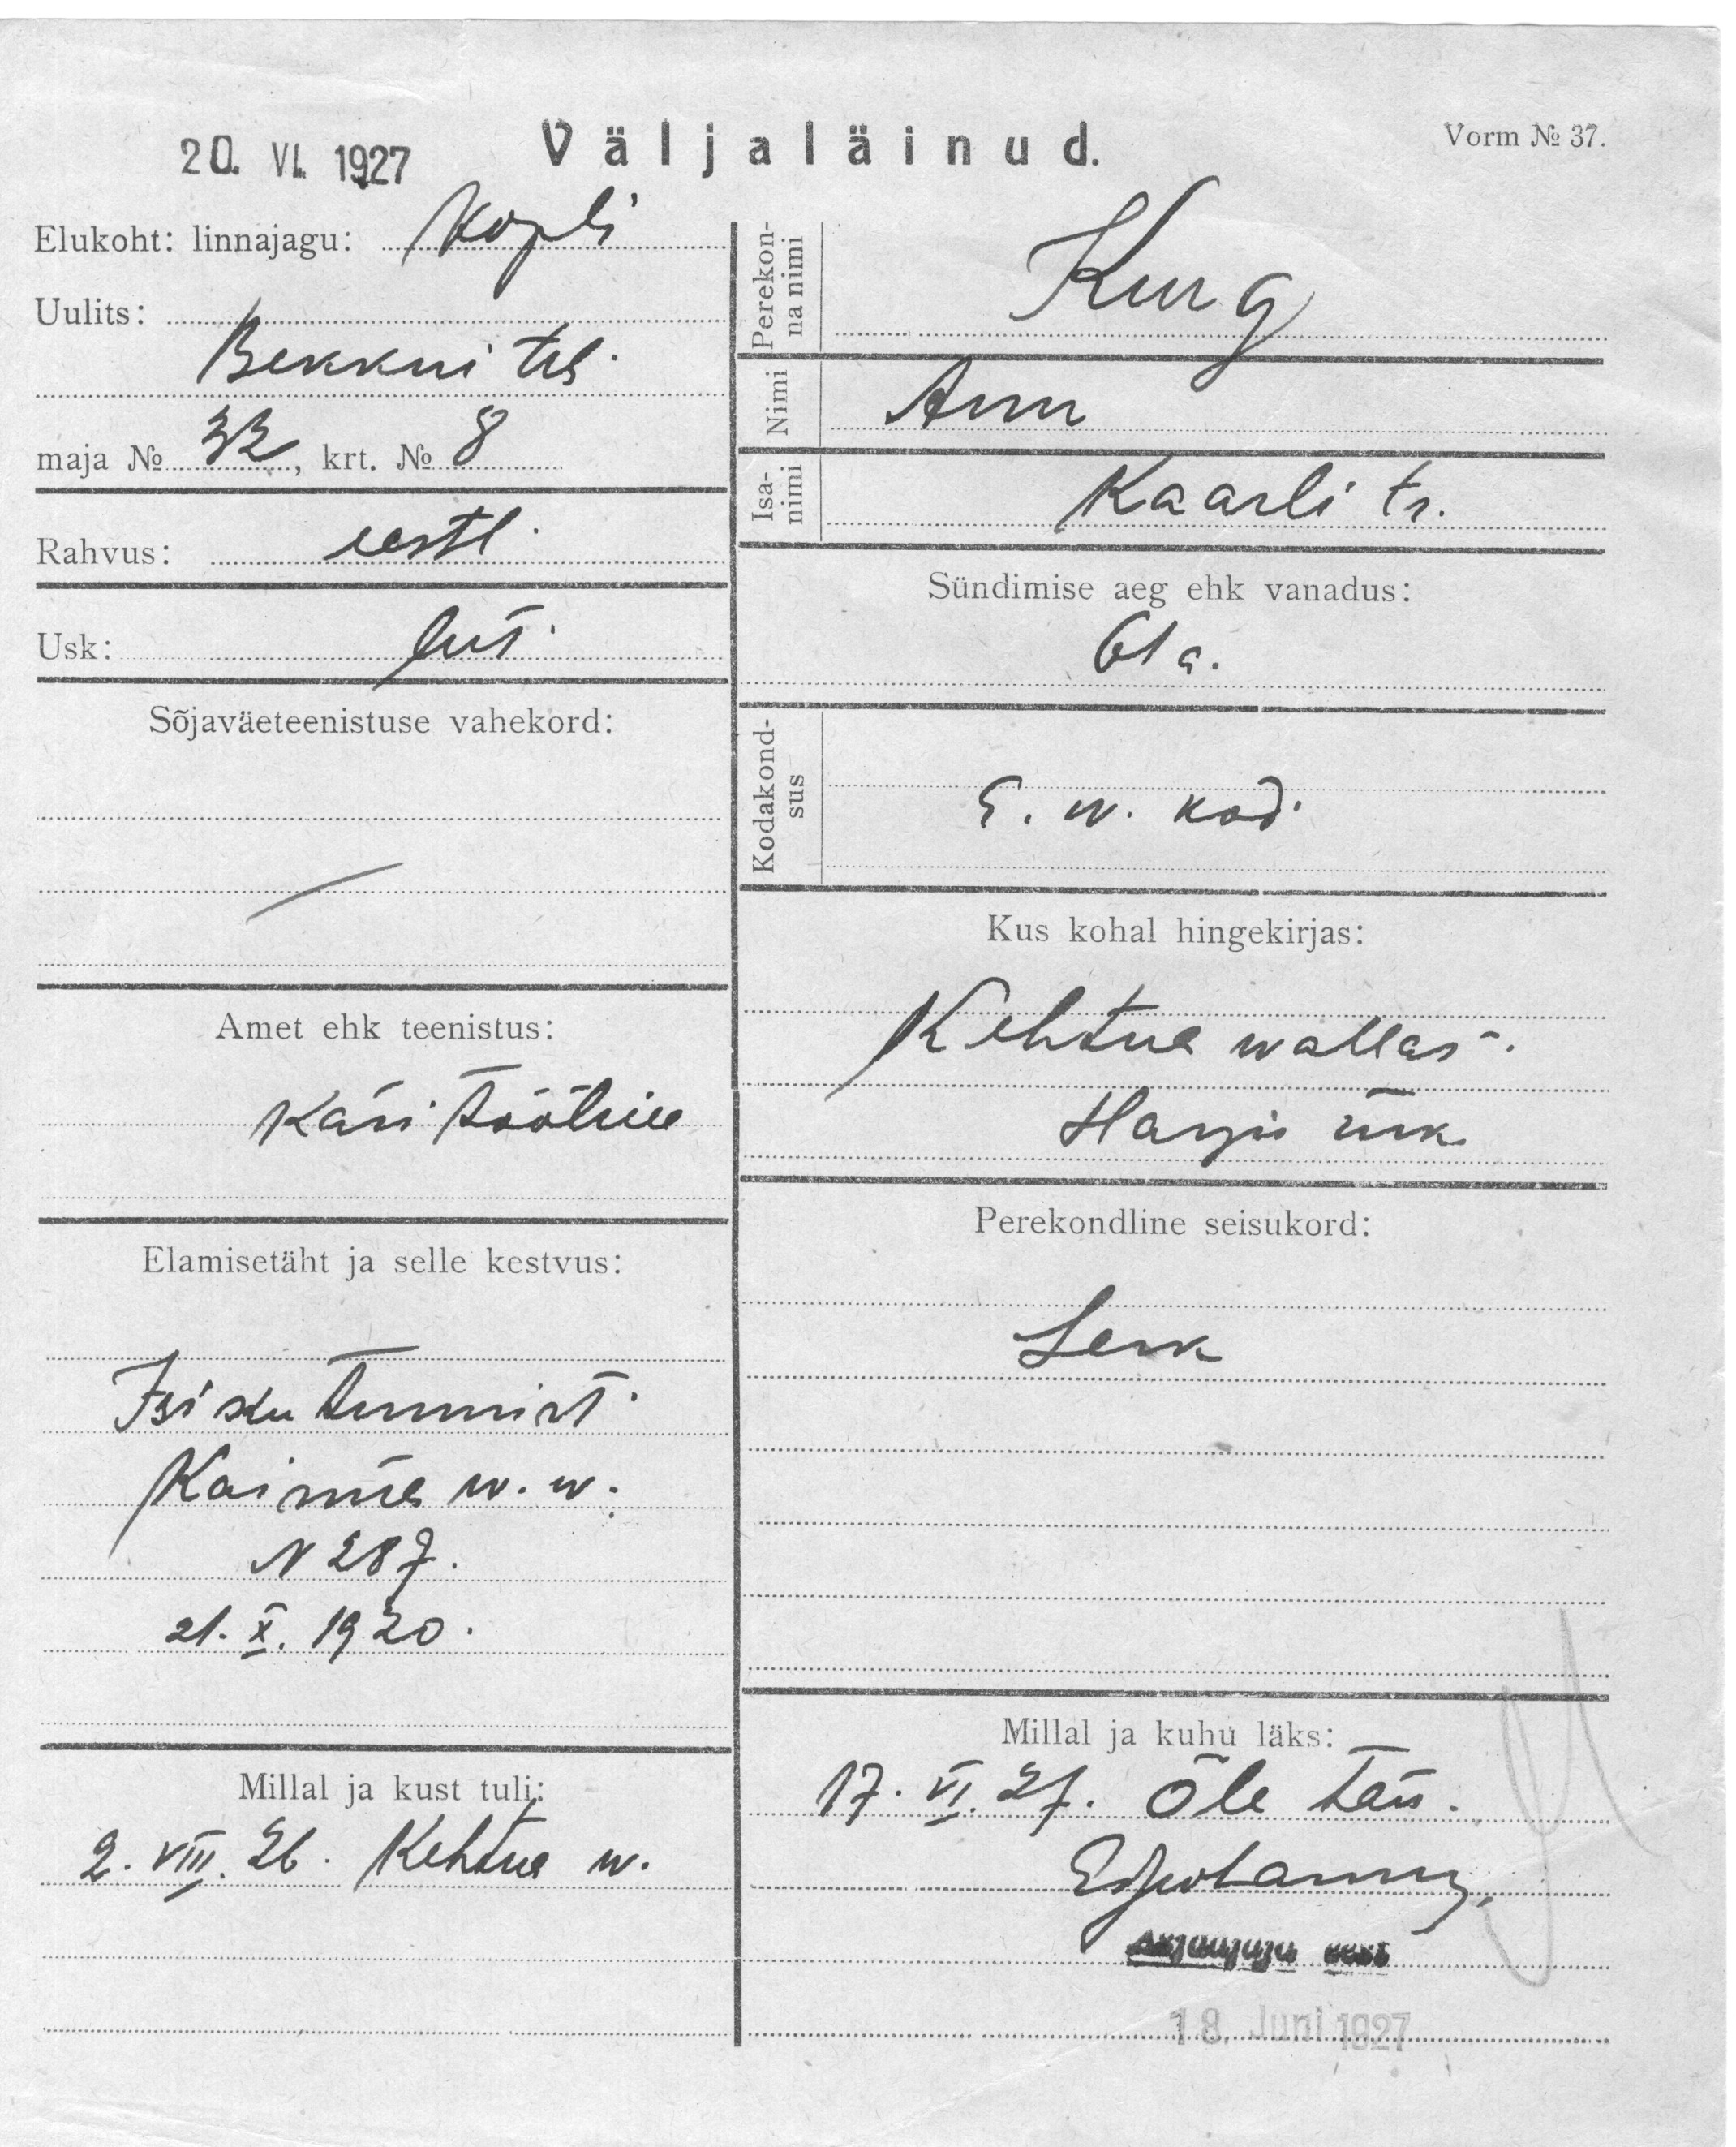 20. VI. 1927
Väljaläinud.
Vorm № 37.
Elukoht: linnajagu: Kopli
Uulits:
Bekkeri teh.
maja № 32, krt. № 8
Rahvus: eestl.
Usk: lut.
Sõjaväeteenistuse vahekord:
—
Amet ehk teenistus:
Käsitööline
Elamisetäht ja selle kestvus:
Isikutunnist.
w. w.
N 287.
21. X. 1920.
Millal ja kust tuli:
2. VIII. 26. Kehtna w.
Perekonna nimi
Kurg
Nimi
Ann
Isanimi
Kaarli tr.
Sündimise aeg ehk vanadus:
61 a.
Kodakondsus
E. w. kod.
Kus kohal hingekirjas:
Kehtna wallas.
Harju mk.
Perekondline seisukord:
Lesk
Millal ja kuhu läks:
17. VI. 27. Õle tän.
18. Juni 1927